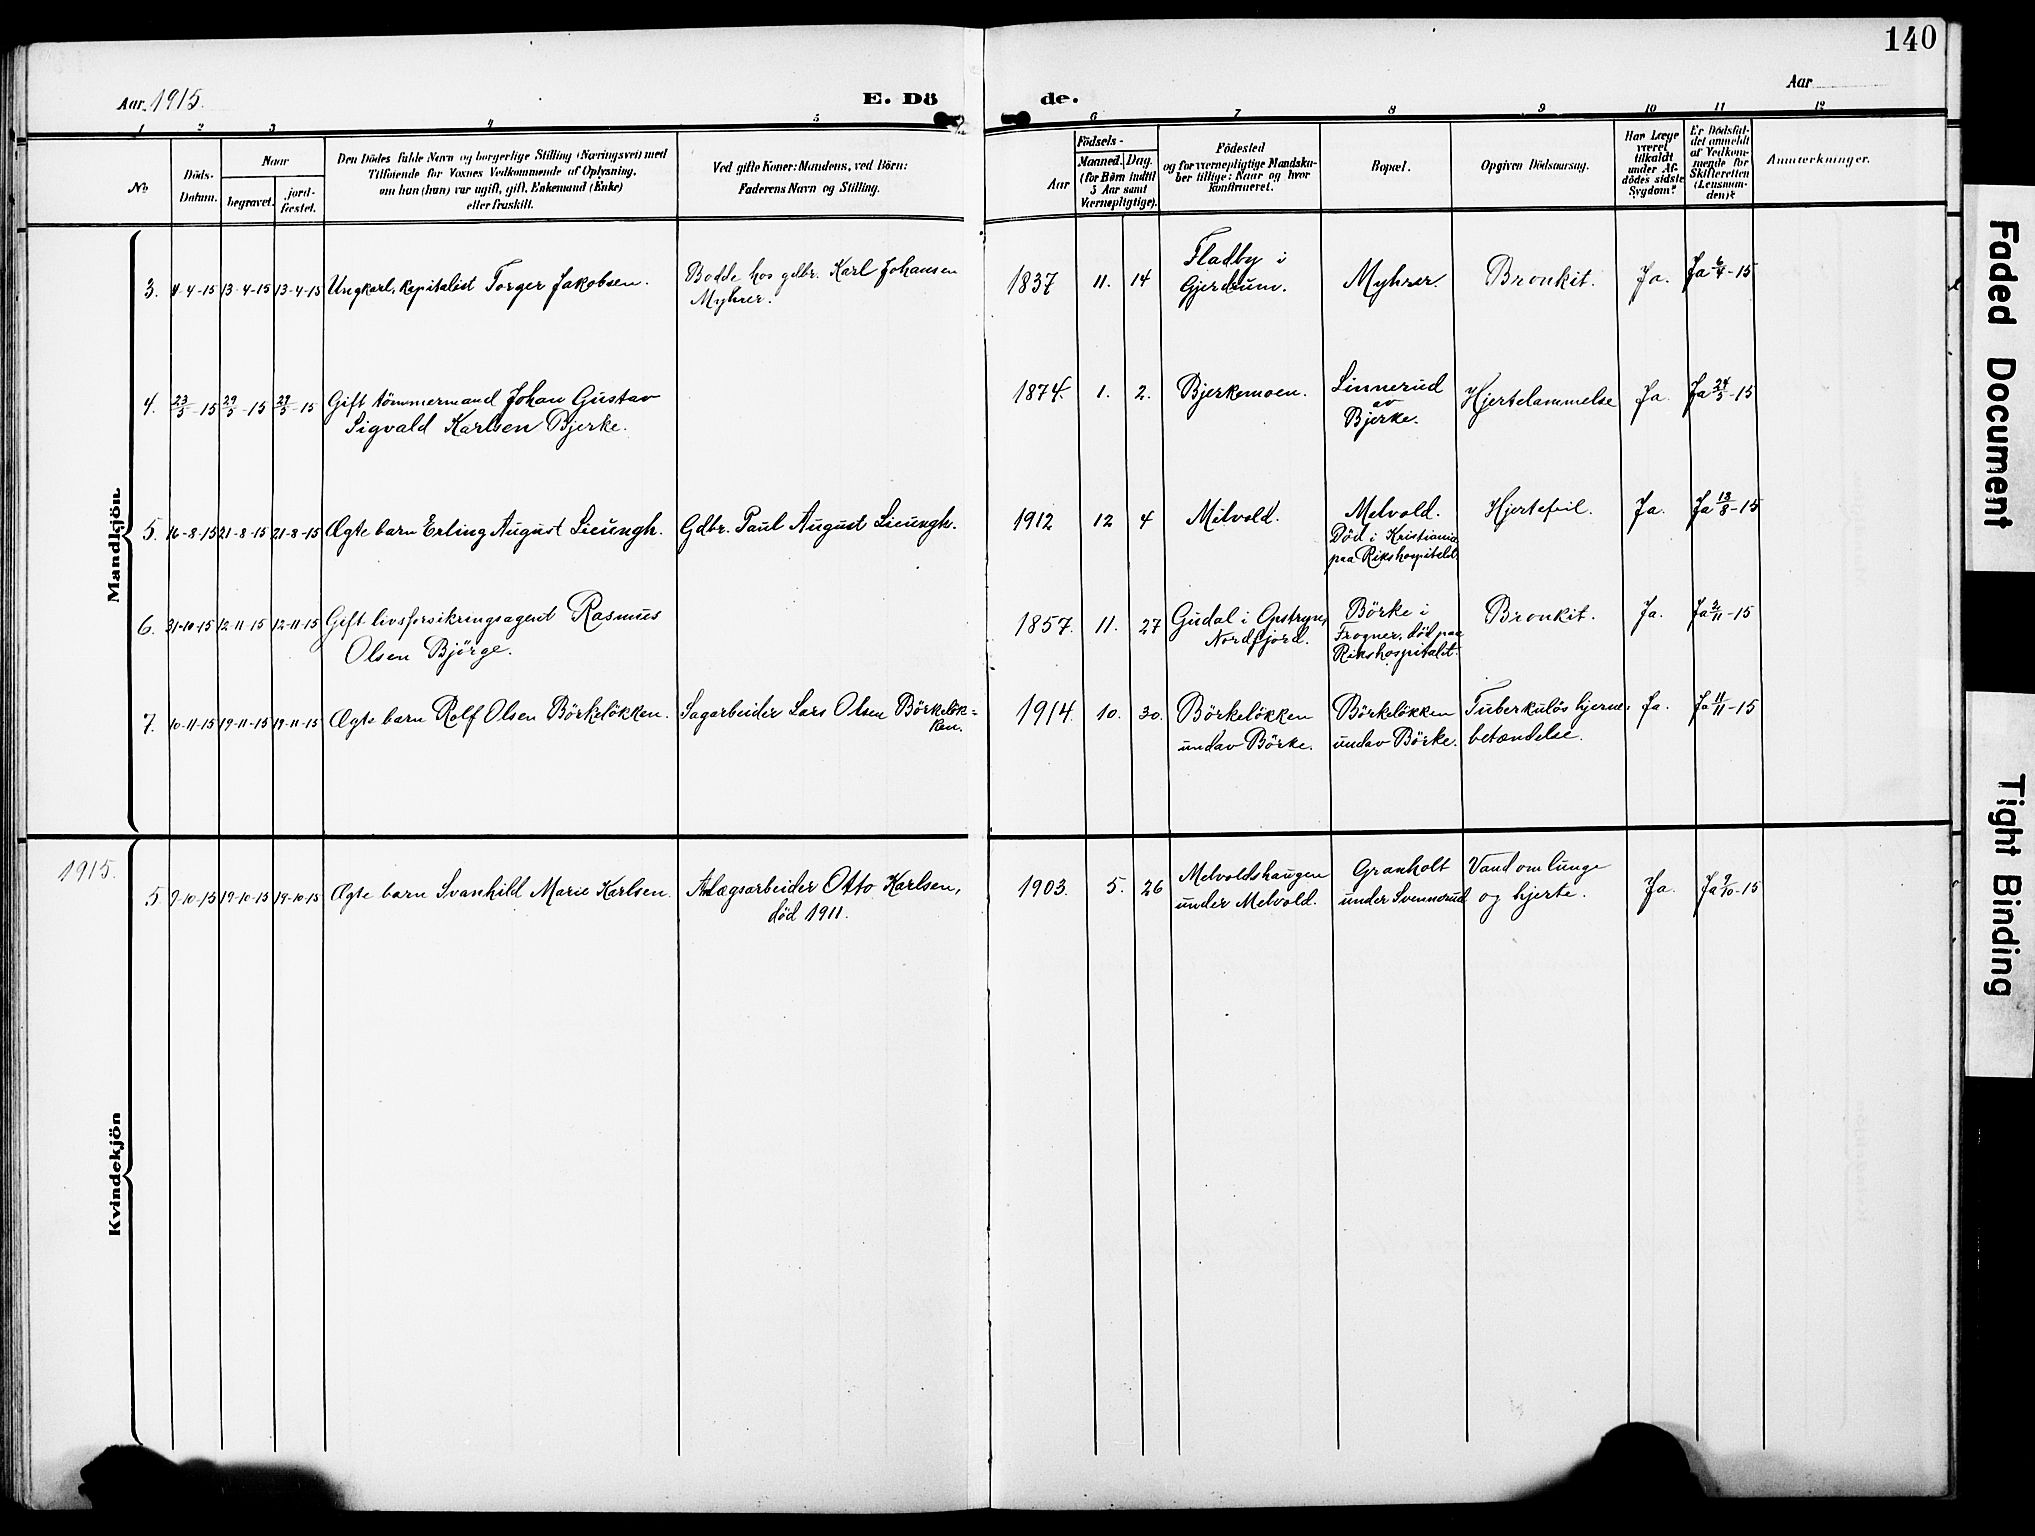 140
Aar 1915.
E. Döde.
Aar
1 2 3 4 5 6 7 8 9 10 11 12
No
Döds-Datum.
Naar
begravet.
jord-fæstet.
Den Dödes fulde Navn og borgerlige Stilling (Næringsvei) med
Tilföiende for Voxnes Vedkommende af Oplysning,
om han (hun) var ugift, gift, Enkemand (Enke)
eller fraskilt.
Ved gifte Koner: Mandens, ved Börn:
Faderens Navn og Stilling.
Födsels-
Aar
Maaned. Dag.
(for Börn indtil
5 Aar samt
Værnepligtige).
Födested
og for værnepligtige Mandska-
ber tillige: Naar og hvor
konfirmeret.
Bopæl.
Opgiven Dödsaarsag.
Har Læge
været
tilkaldt
under Af-
dödes sidste
Sygdom?
Er Dödsfal-
det anmeldt
af Vedkom-
mende for
Skifteretten
(Lensman-
den)?
Anmærkninger.
Mandkjön.
3. 4-4-15 13-4-15 13-4-15 Ungkarl, kapitalist Torger Jakobsen. Bodde hos gdbr. Karl Johansen
Myhrer. 1837 11. 14 Fladby i
Gjerdrum. Myhrer. Bronkit. Ja. Ja 6/4-15
4. 23/5-15 29/5-15 29/5-15 Gift tömmermand Johan Gustav
Sigvald Karlsen Bjerke. 1874. 1. 2. Bjerkemoen. Linnerud
av
Bjerke. Hjertelammelse Ja. Ja 24/5-15
5. 16-8-15 21-8-15 21-8-15 Ægte barn Erling August Lieungh. Gdbr. Paul August Lieungh. 1912 12 4 Melvold. Melvold.
Död i Kristiania
paa Rikshospitalet. Hjertefeil. Ja. Ja 18/8-15
6. 31-10-15 12-11-15 12-11-15 Gift livsforsikringsagent Rasmus
Olsen Bjørge. 1857. 11. 27 Gudal i Opstryn,
Nordfjord. Börke i
Frogner, död paa
Rikshospitalet. Bronkit. Ja. Ja 2/11-15
7. 10-11-15 19-11-15 19-11-15 Ægte barn Rolf Olsen Börkelökken. Sagarbeider Lars Olsen Börkelök=
ken. 1914. 10. 30. Börkelökken
undav Börke. Börkelökken
undav Börke. Tuberkulös hjerne-
betændelse. Ja. Ja 11/11-15
1915.
Kvindekjön
5. 9-10-15 19-10-15 19-10-15 Ægte barn Svanhild Marie Karlsen. Anlægsarbeider Otto Karlsen,
död 1911. 1903. 5. 26 Melvoldshaugen
under Melvold. Granholt
under Svennerud Vand om lunge
og hjerte. Ja. Ja 9/10-15
Faded Document
Tight Binding